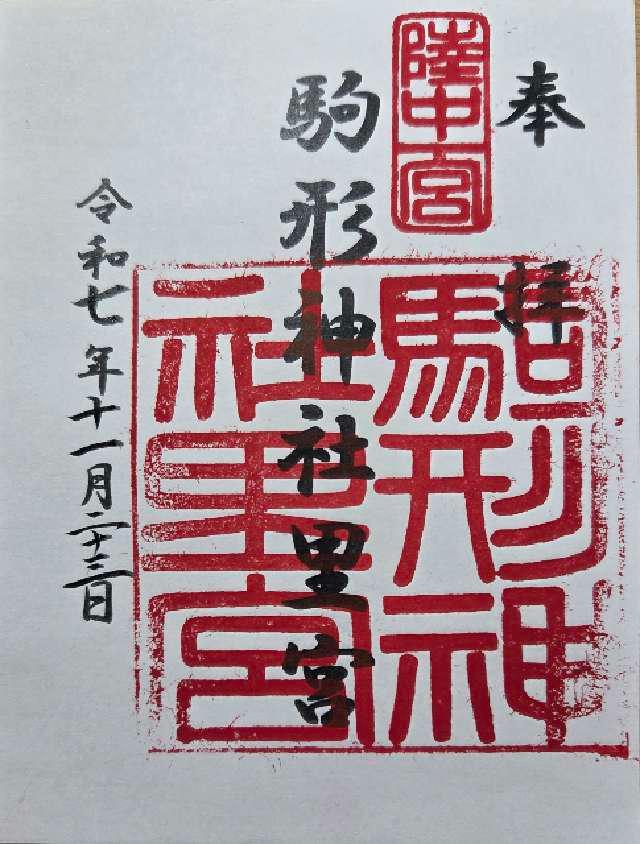 奉拝
陸中一宮
駒形神社里宮
駒形神社里宮
令和七年十一月二十三日